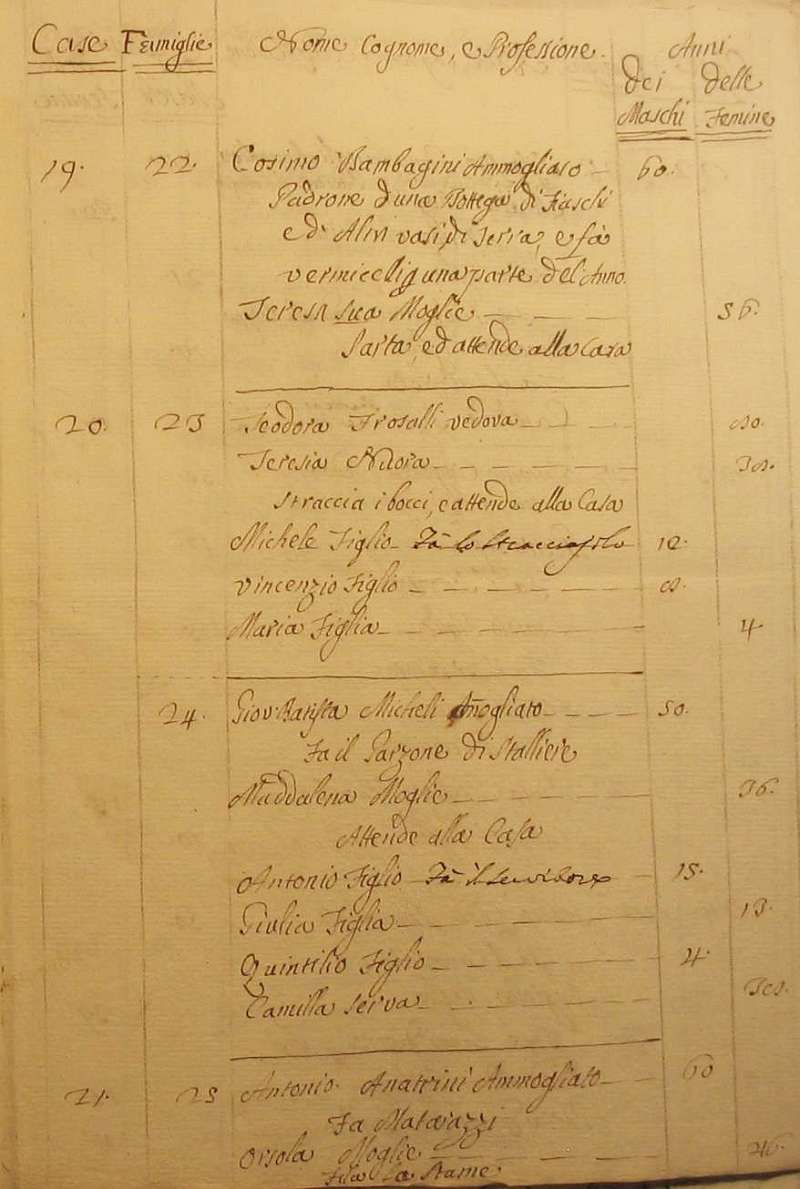 Case Famiglie Nome Cognome, e Professione. Anni
dei delle
Maschi Femine
19. 22. Cosimo Bambagini Ammogliato 60.
Padrone d'una Bottega di Fiaschi
e d'Altri vasi di Terra, e fà
vermicelli una parte del Anno.
Teresa sua Moglie 56.
Sarta, ed attende alla Casa
20. 23 Teodora Frosalli vedova
Teresia Nuora
straccia i bocci, e attende alla Casa
Michele Figlio Fà lo Stracciafolo 12.
Vincenzio Figlio
Maria Figlia 4.
24. Giov: Batista Micheli Amogliato 50.
Fa il Garzone di Stalliere
Maddalena Moglie 36.
Attende alla Casa
Antonio Figlio Fà il Servidore 15.
Giulia Figlia 13.
Quintilio Figlio 4.
Camilla Serva
21. 25 Antonio Anatrini Ammogliato 60
Fa Matarazzi
Orsola Moglie
Fila la Stame